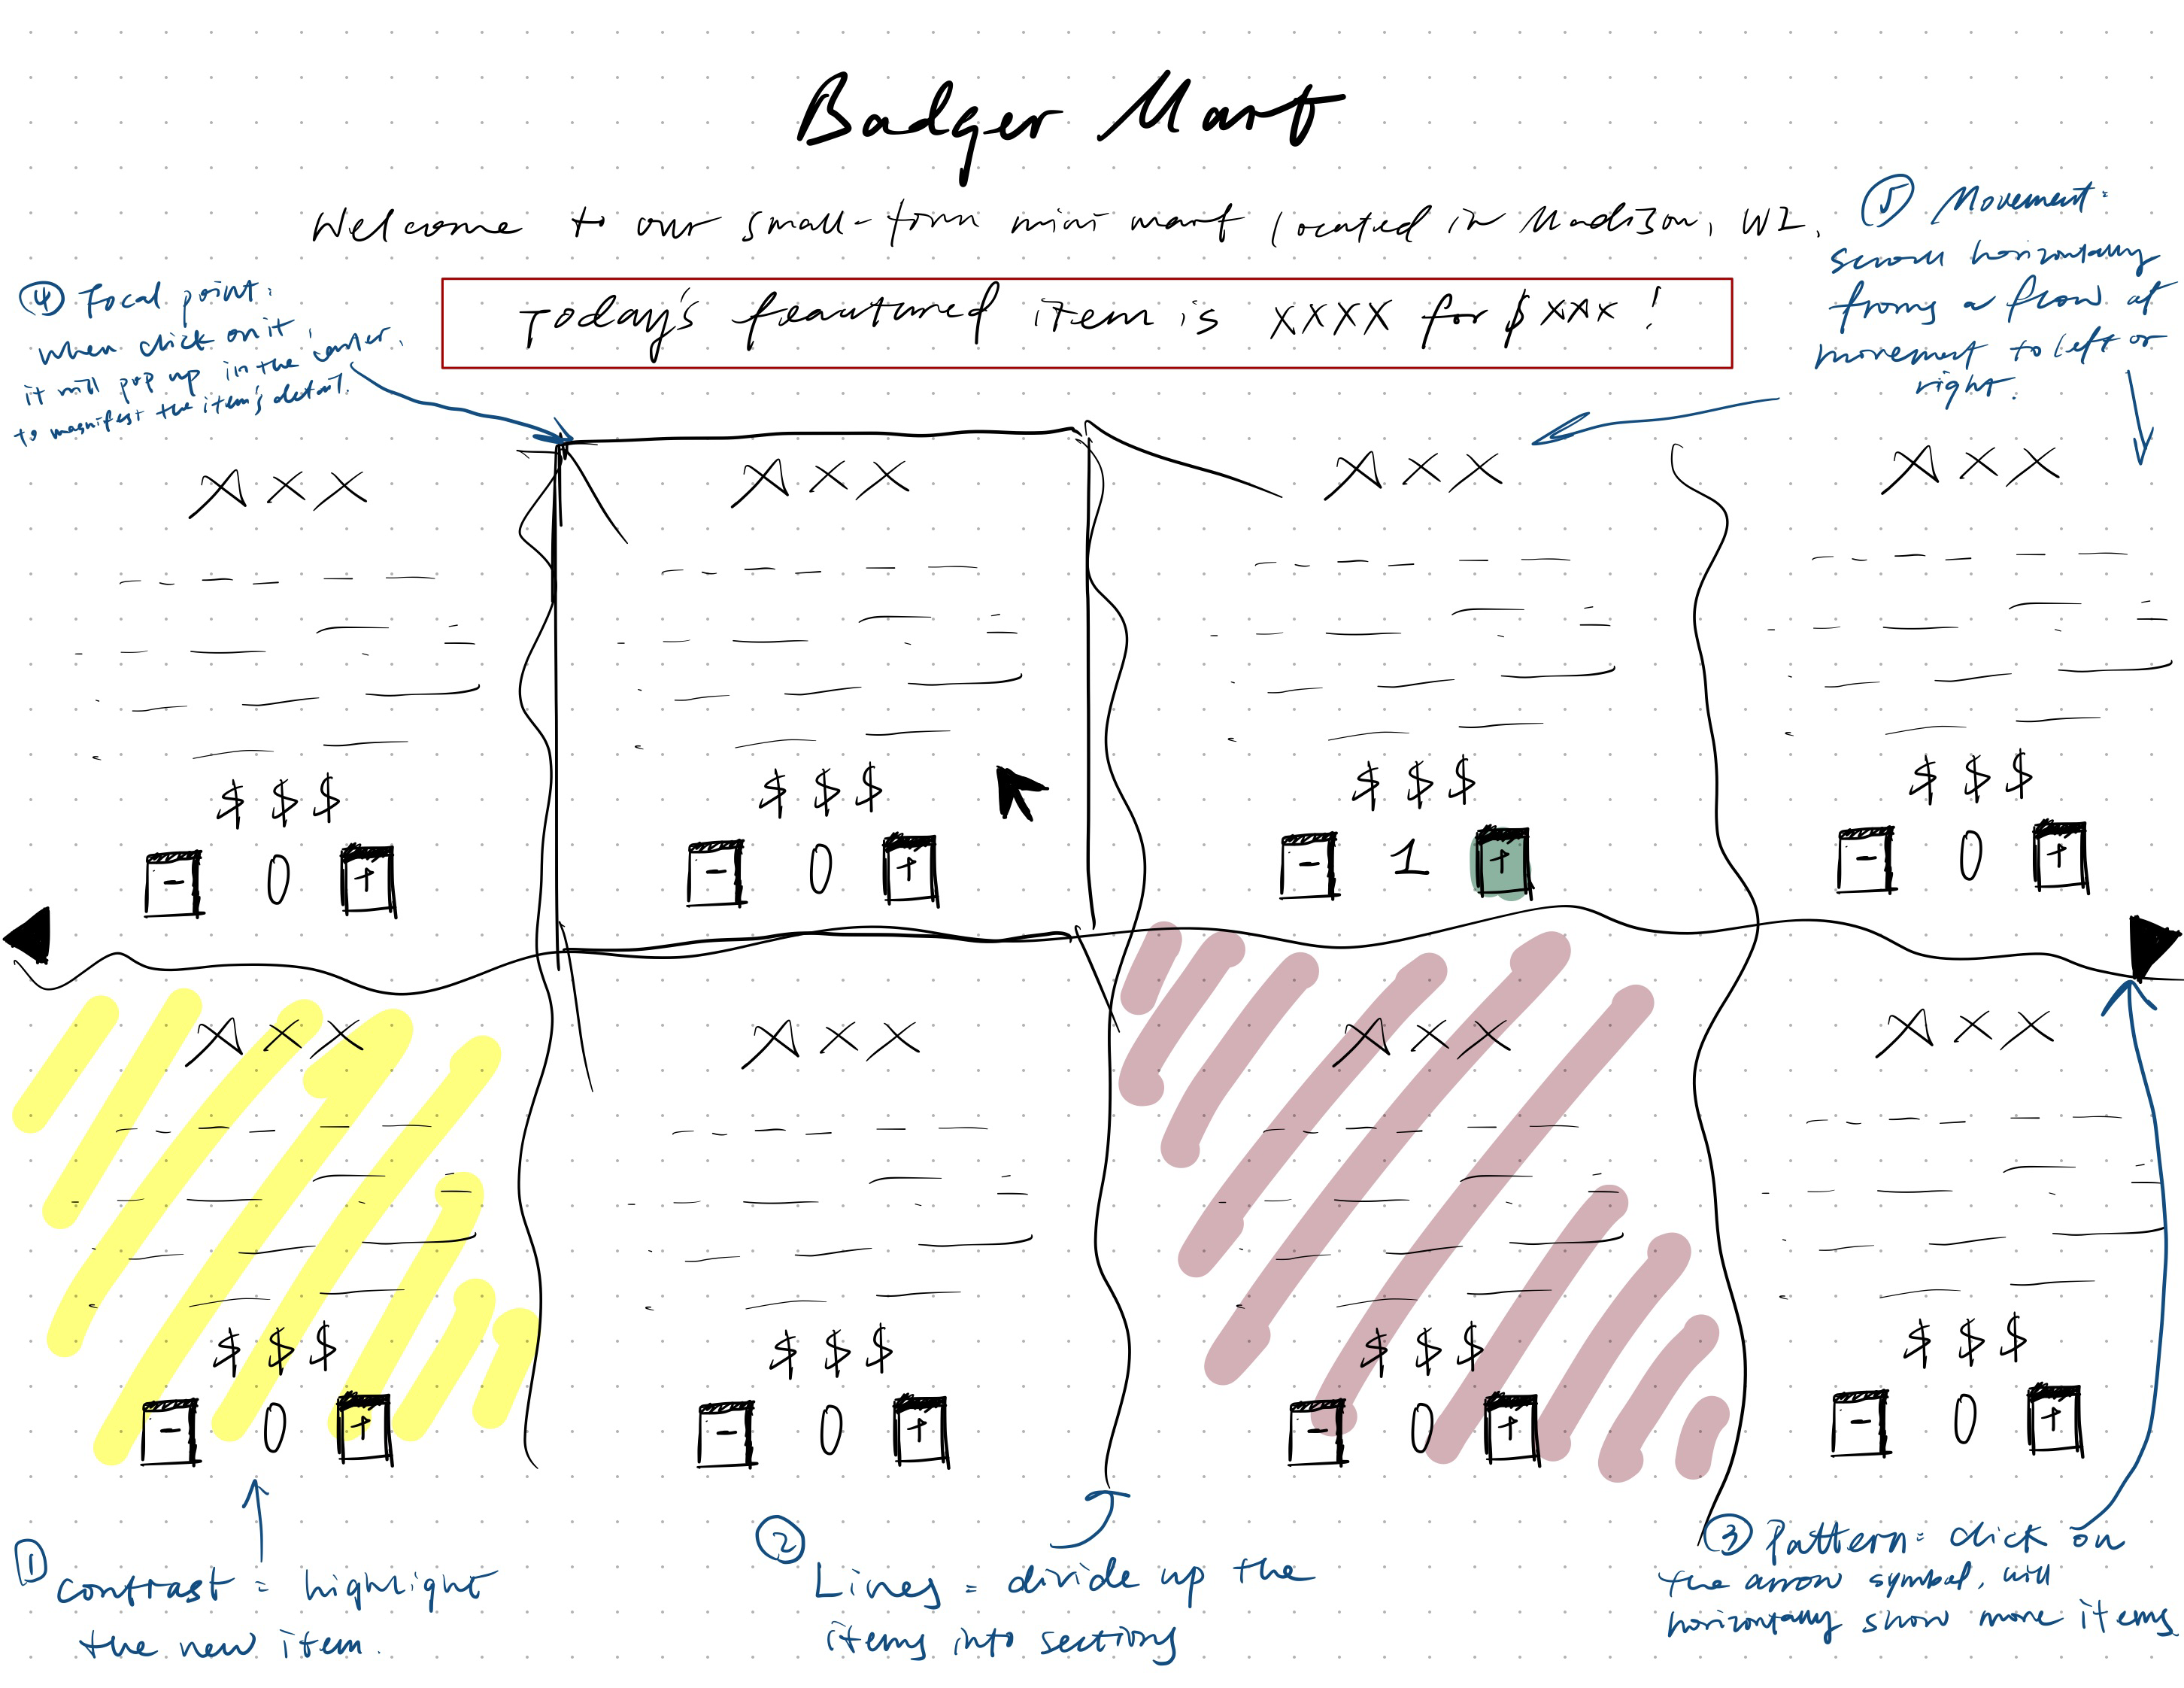 Badger Mart
Welcome to our small-town mini mart located in Madison, WI.
Today's feautured item is XXXX for $ XXX !
④ Focal point:
when click on it,
it will pop up in the center,
to magnifest the item's detail.
⑤ Movement:
scroll horizontally
froms a flow of
movement to left or
right.
XXX
XXX
XXX
XXX
$ $ $
$ $ $
$ $ $
$ $ $
- 0 +
- 0 +
- 1 +
- 0 +
XXX
XXX
XXX
XXX
$ $ $
$ $ $
$ $ $
$ $ $
- 0 +
- 0 +
- 0 +
- 0 +
① Contrast: highlight
the new item.
② Lines: divide up the
items into sections
③ Pattern: click on
the arrow symbol, will
horizontally show more items